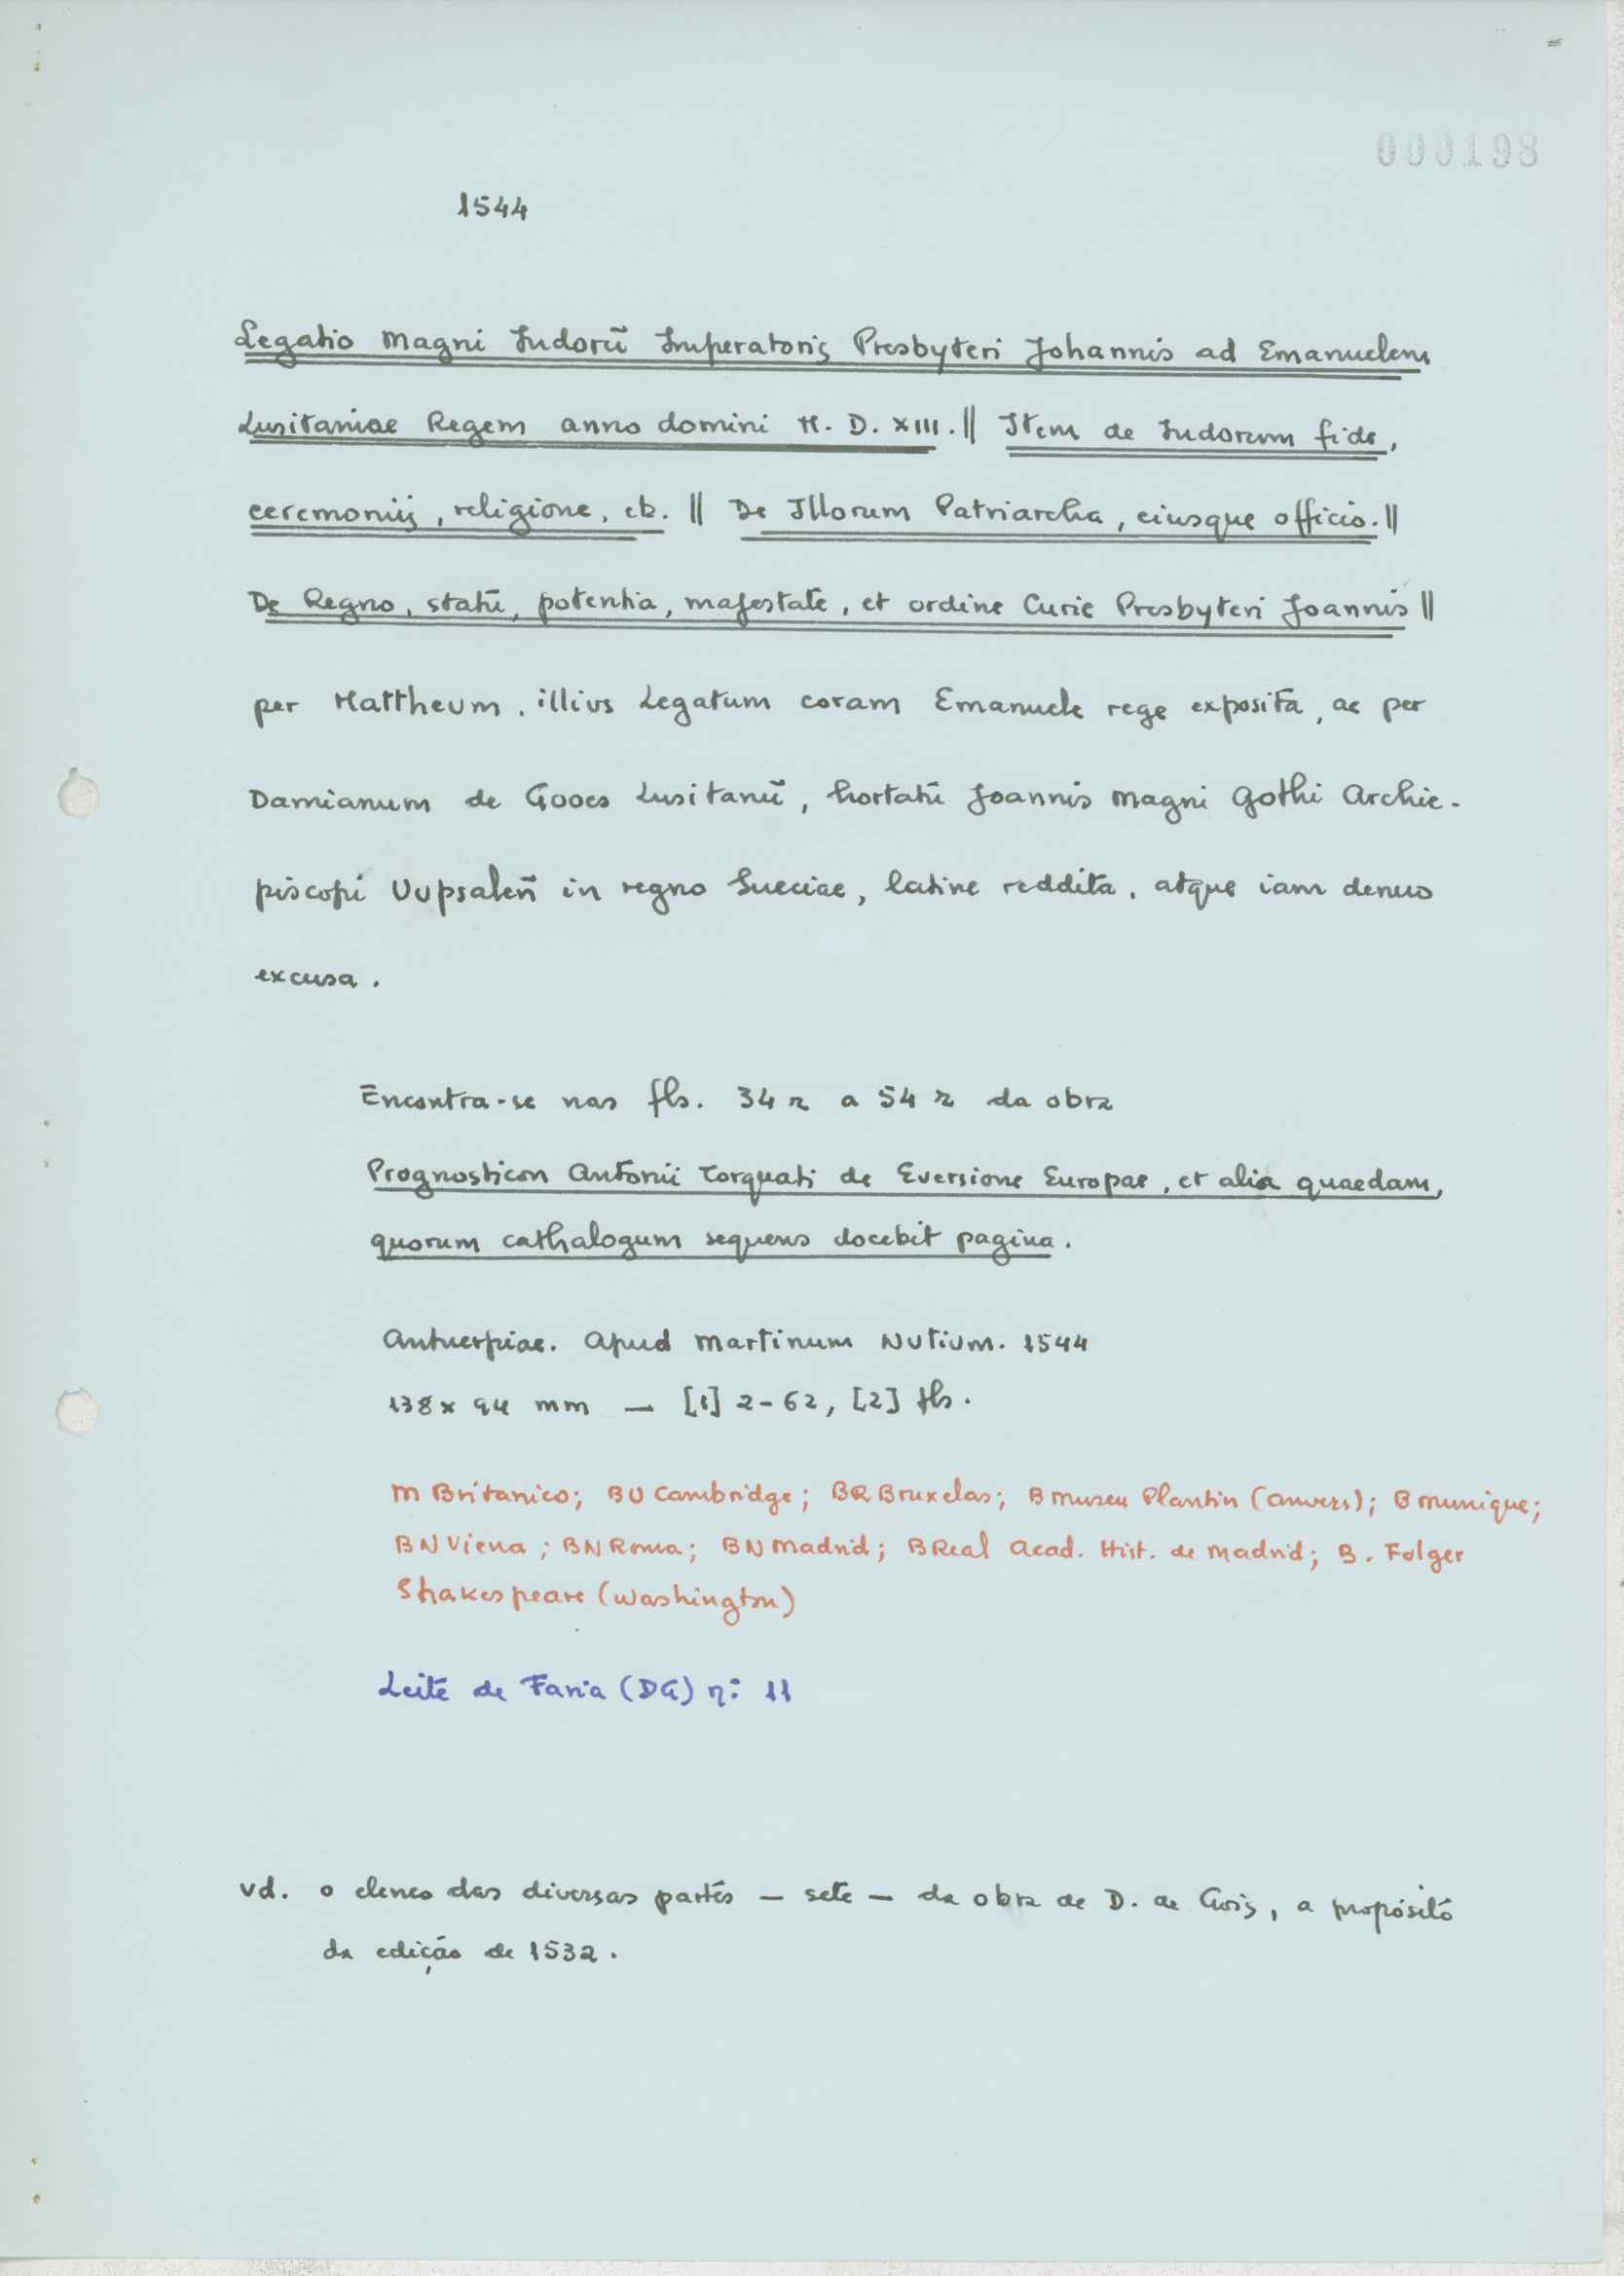 000198
1544
Legatio Magni Indorũ Imperatoris Presbyteri Johannis ad Emanuelem
Lusitaniae Regem anno domini M. D. XIII. || Item de Indorum fide,
ceremonijs, religione, etc. || De Illorum Patriarcha, eiusque officio. ||
De Regno, statũ, potentia, majestate, et ordine Curie Presbyteri Joannis ||
per Mattheum, illius Legatum coram Emanuele rege exposita, ac per
Damianum de Gooes Lusitanũ, hortatũ Joannis Magni Gothi Archie-
piscopi Vupsaleñ in regno Sueciae, latine reddita, atque iam denuo
excusa.
Encontra-se nas fls. 34 r a 54 r da obra
Prognosticon Antonii Torquati de Eversione Europae, et alia quaedam,
quorum cathalogum sequens docebit pagina.
Antuerpiae. Apud Martinum Nutium. 1544
138 x 94 mm — [1] 2-62, [2] fls.
M Britanico; BU Cambridge; BR Bruxelas; B Museu Plantin (Anvers); B Munique;
BN Viena; BN Roma; BN Madrid; B Real Acad. Hist. de Madrid; B. Folger
Shakespeare (Washington)
Leite de Faria (DG) nº 11
vd. o elenco das diversas partes — sete — da obra de D. de Gois, a propósito
da edição de 1532.